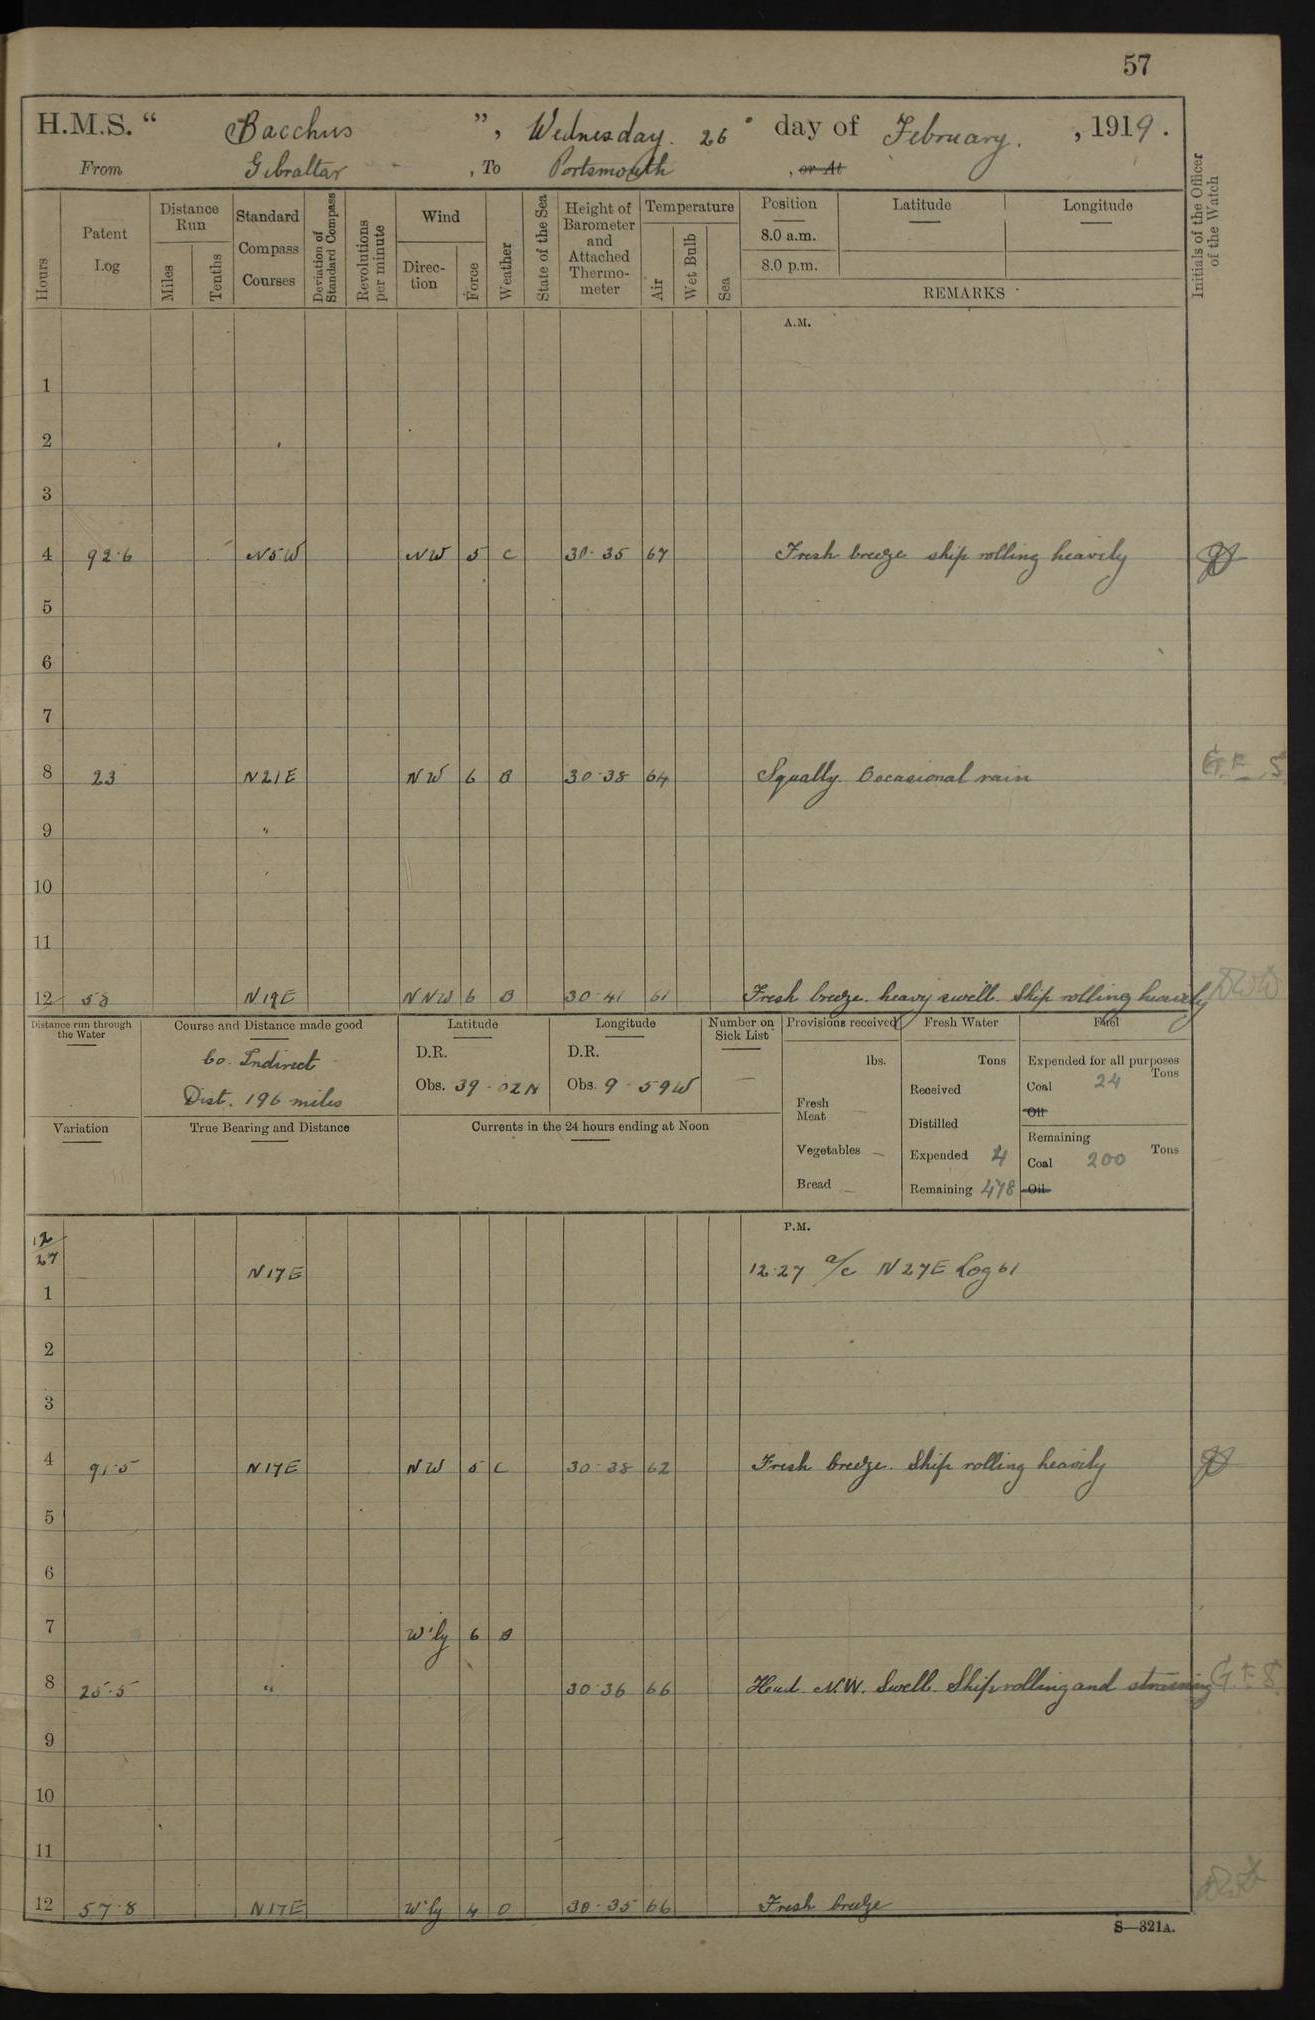 57
H.M.S. “ Bacchus ”, Wednesday. 26 day of February. , 1919.
From Gibraltar , To Portsmouth , or At
Hours
Patent Log
Distance Run
Miles
Tenths
Standard Compass Courses
Deviation of Standard Compass
Revolutions per minute
Wind
Direction
Force
Weather
State of the Sea
Height of Barometer and Attached Thermometer
Temperature
Air
Wet Bulb
Sea
Position Latitude Longitude
8.0 a.m.
8.0 p.m.
REMARKS
Initials of the Officer of the Watch
A.M.
1
2
3
4 92·6 N5W NW 5 C 30·35 67 Fresh breeze ship rolling heavily
5
6
7
8 23 N21E NW 6 B 30·38 64 Squally. Occasional rain G.F.S.
9 "
10
11
12 58 N19E NNW 6 B 30·41 61 Fresh breeze. heavy swell. Ship rolling heavily
Distance run through the Water
Course and Distance made good
Co. Indirect
Dist. 196 miles
Latitude
D.R.
Obs. 39-02N
Longitude
D.R.
Obs. 9-59W
Number on Sick List
—
Provisions received
lbs.
Fresh Meat —
Vegetables —
Bread —
Fresh Water
Tons
Received
Distilled
Expended 4
Remaining 478
Fuel
Expended for all purposes
Tons
Coal 24
Oil
Remaining
Tons
Coal 200
Oil
Variation
True Bearing and Distance
Currents in the 24 hours ending at Noon
P.M.
12/27
1 N17E 12·27 a/c N27E Log 61
2
3
4 91·5 N17E NW 5 C 30·38 62 Fresh breeze. Ship rolling heavily
5
6
7 W'ly 6 B
8 25·5 " 30·36 66 Head N.W. Swell. Ship rolling and straining G.F.S.
9
10
11
12 57·8 N17E W'ly 4 O 30·35 66 Fresh breeze
S—321A.